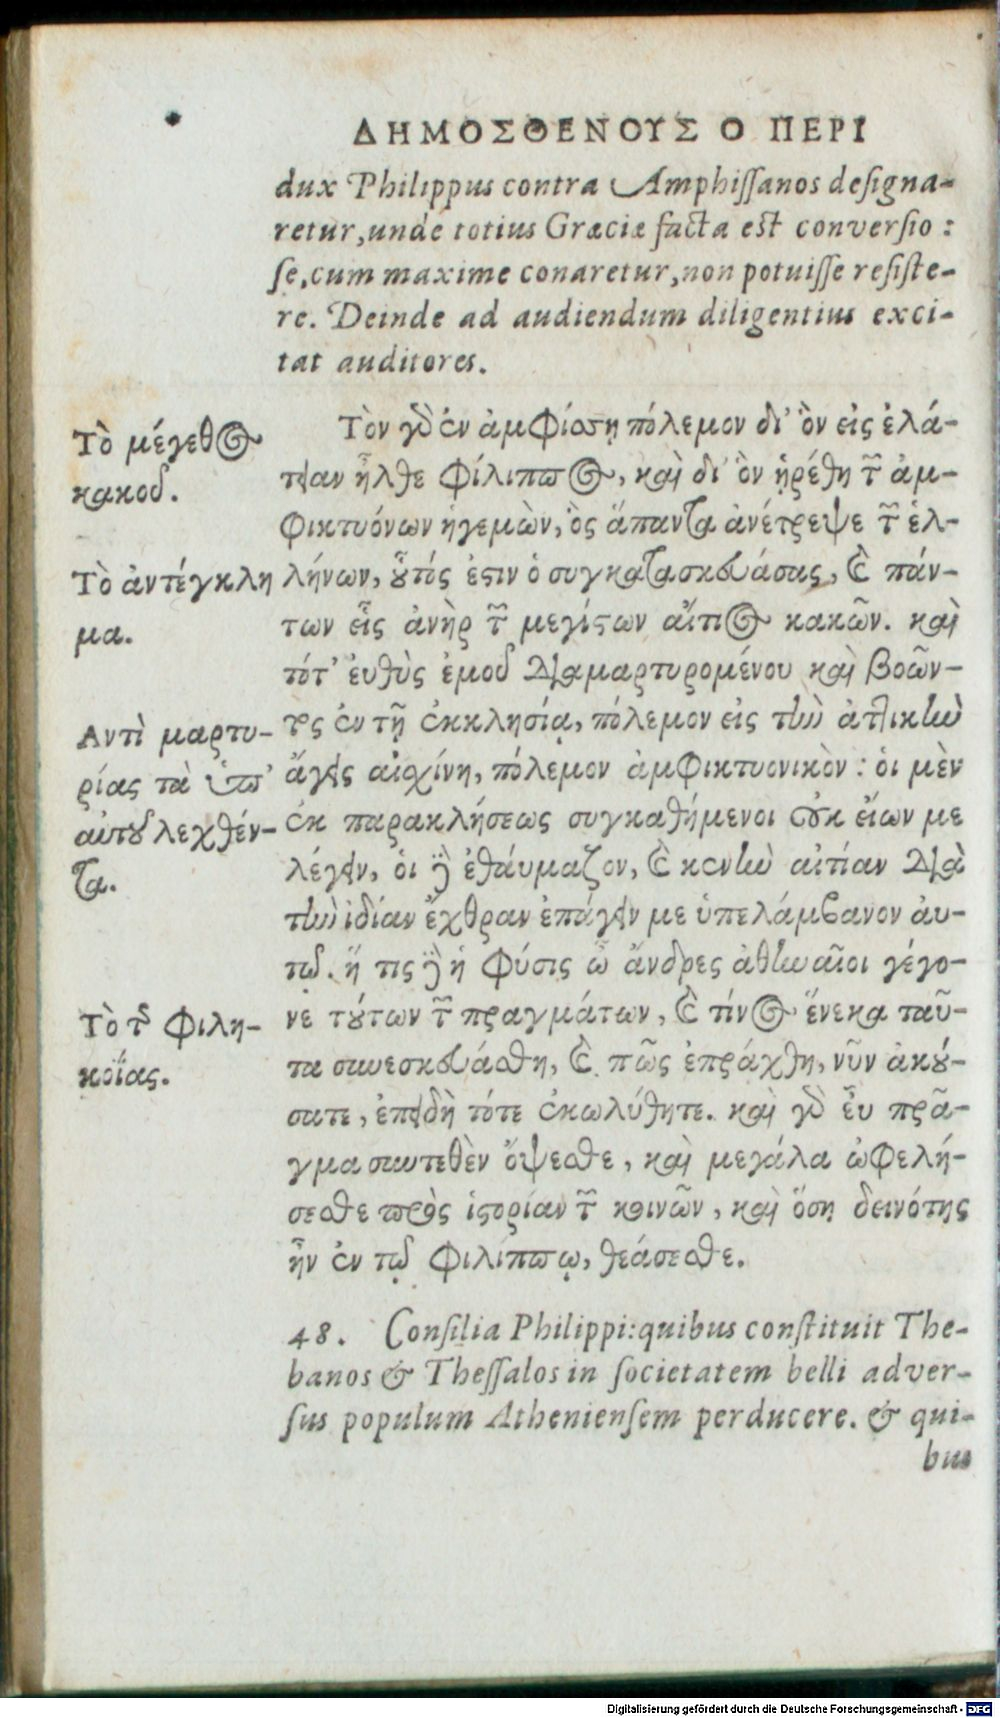 ΔΗΜΟΣΘΕΝΟΥΣ Ο ΠΕΡΙ
dux Philippus contra Amphissanos designa-
retur, unde totius Græciæ facta est conversio:
se, cum maxime conaretur, non potuisse resiste-
re. Deinde ad audiendum diligentius exci-
tat auditores.
Τὸν γὸ ἐν ἀμφίσσῃ πόλεμον δι' ὃν εἰς ἐλά-
τειαν ἦλθε φίλιππος, καὶ δι' ὃν ᾑρέθη τῶν ἀμ-
φικτυόνων ἡγεμὼν, ὃς ἅπαντα ἀνέτρεψε τῶν ἑλ-
λήνων, οὗτός ἐστιν ὁ συγκατασκευάσας, καὶ πάν-
των εἷς ἀνὴρ τῶν μεγίστων αἴτιος κακῶν. καὶ
τότ' ἐυθὺς ἐμοῦ διαμαρτυρομένου καὶ βοῶν-
τος ἐν τῇ ἐκκλησίᾳ, πόλεμον εἰς τὴν ἀττικὴν
ἄγεις αἰσχίνη, πόλεμον ἀμφικτυονικὸν: ὁι μὲν
ἐκ παρακλήσεως συγκαθήμενοι οὐκ εἴων με
λέγειν, ὁι δὲ ἐθαύμαζον, καὶ κενὴν αἰτίαν διὰ
τὴν ἰδίαν ἔχθραν ἐπάγειν με ὑπελάμβανον ἀυ-
τῷ. ἥ τις δὲ ἡ φύσις ὦ ἄνδρες ἀθηναῖοι γέγο-
νε τούτων τῶν πραγμάτων, καὶ τίνος ἕνεκα ταῦ-
τα συνεσκευάσθη, καὶ πῶς ἐπράχθη, νῦν ἀκού-
σατε, ἐπειδὴ τότε ἐκωλύθητε. καὶ γὸ ἐυ πρᾶ-
γμα συντεθὲν ὄψεσθε, καὶ μεγάλα ὠφελή-
σεσθε πρὸς ἱστορίαν τῶν κοινῶν, καὶ ὅση δεινότης
ἦν ἐν τῷ φιλίππῳ, θεάσεσθε.
48. Consilia Philippi: quibus constituit The-
banos & Thessalos in societatem belli adver-
sus populum Atheniensem perducere. & qui-
bus
Τὸ μέγεθος
κακοῦ.
Τὸ ἀντέγκλη
μα.
Αντὶ μαρτυ-
ρίας τὰ ὑπ'
αὐτοῦ λεχθέν-
τα.
Τὸ τῆς φιλη-
κοΐας.
Digitalisierung gefördert durch die Deutsche Forschungsgemeinschaft - DFG